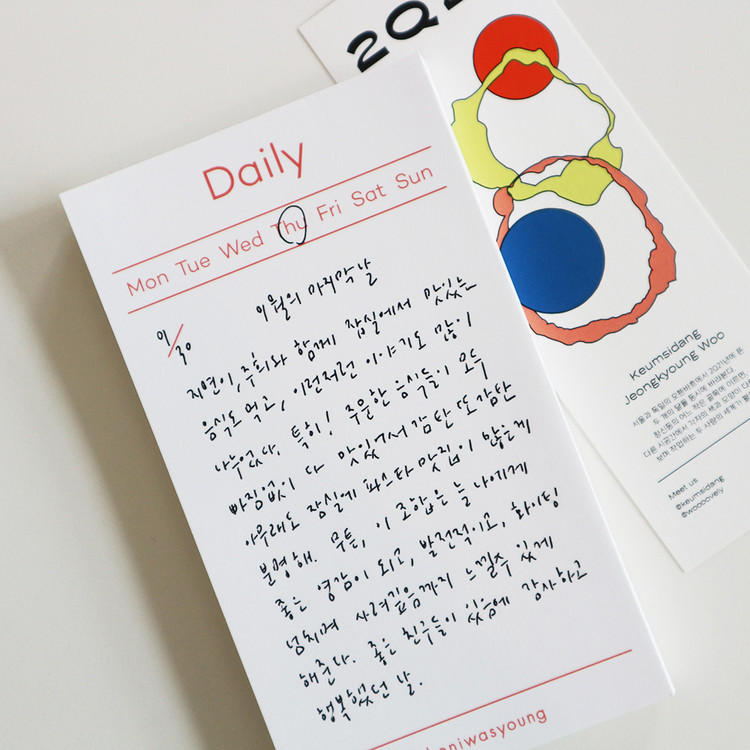 Daily
Mon Tue Wed Thu Fri Sat Sun
이월의 마지막 날
지연이, 주희와 함께 잠실에서 맛있는
음식도 먹고, 이런저런 이야기도 많이
나누었다. 특히! 주문한 음식들이 모두
빠짐없이 다 맛있어서 감탄 또 감탄
아무래도 잠실에 파스타 맛집이 많은게
분명해. 무튼, 이 조합은 늘 나에게
좋은 영감이 되고, 발전적이고, 화이팅
넘치며 사려깊음까지 느낄수 있게
해준다. 좋은 친구들이 있음에 감사하고
행복했던 날.
2Q2
Keumsidang
Jeongkyoung Woo
서울과 독일의 오펜바흐에서 2021년에 뜬
두 개의 달을 동시에 바라본다
창신동의 어느 작은 골목에 이르면,
다른 시공가에서 각자의 색과 모양이 다
보며 작업하는 두 사람의 세계가 펼
Meet us
@keumsidang
@woooovely